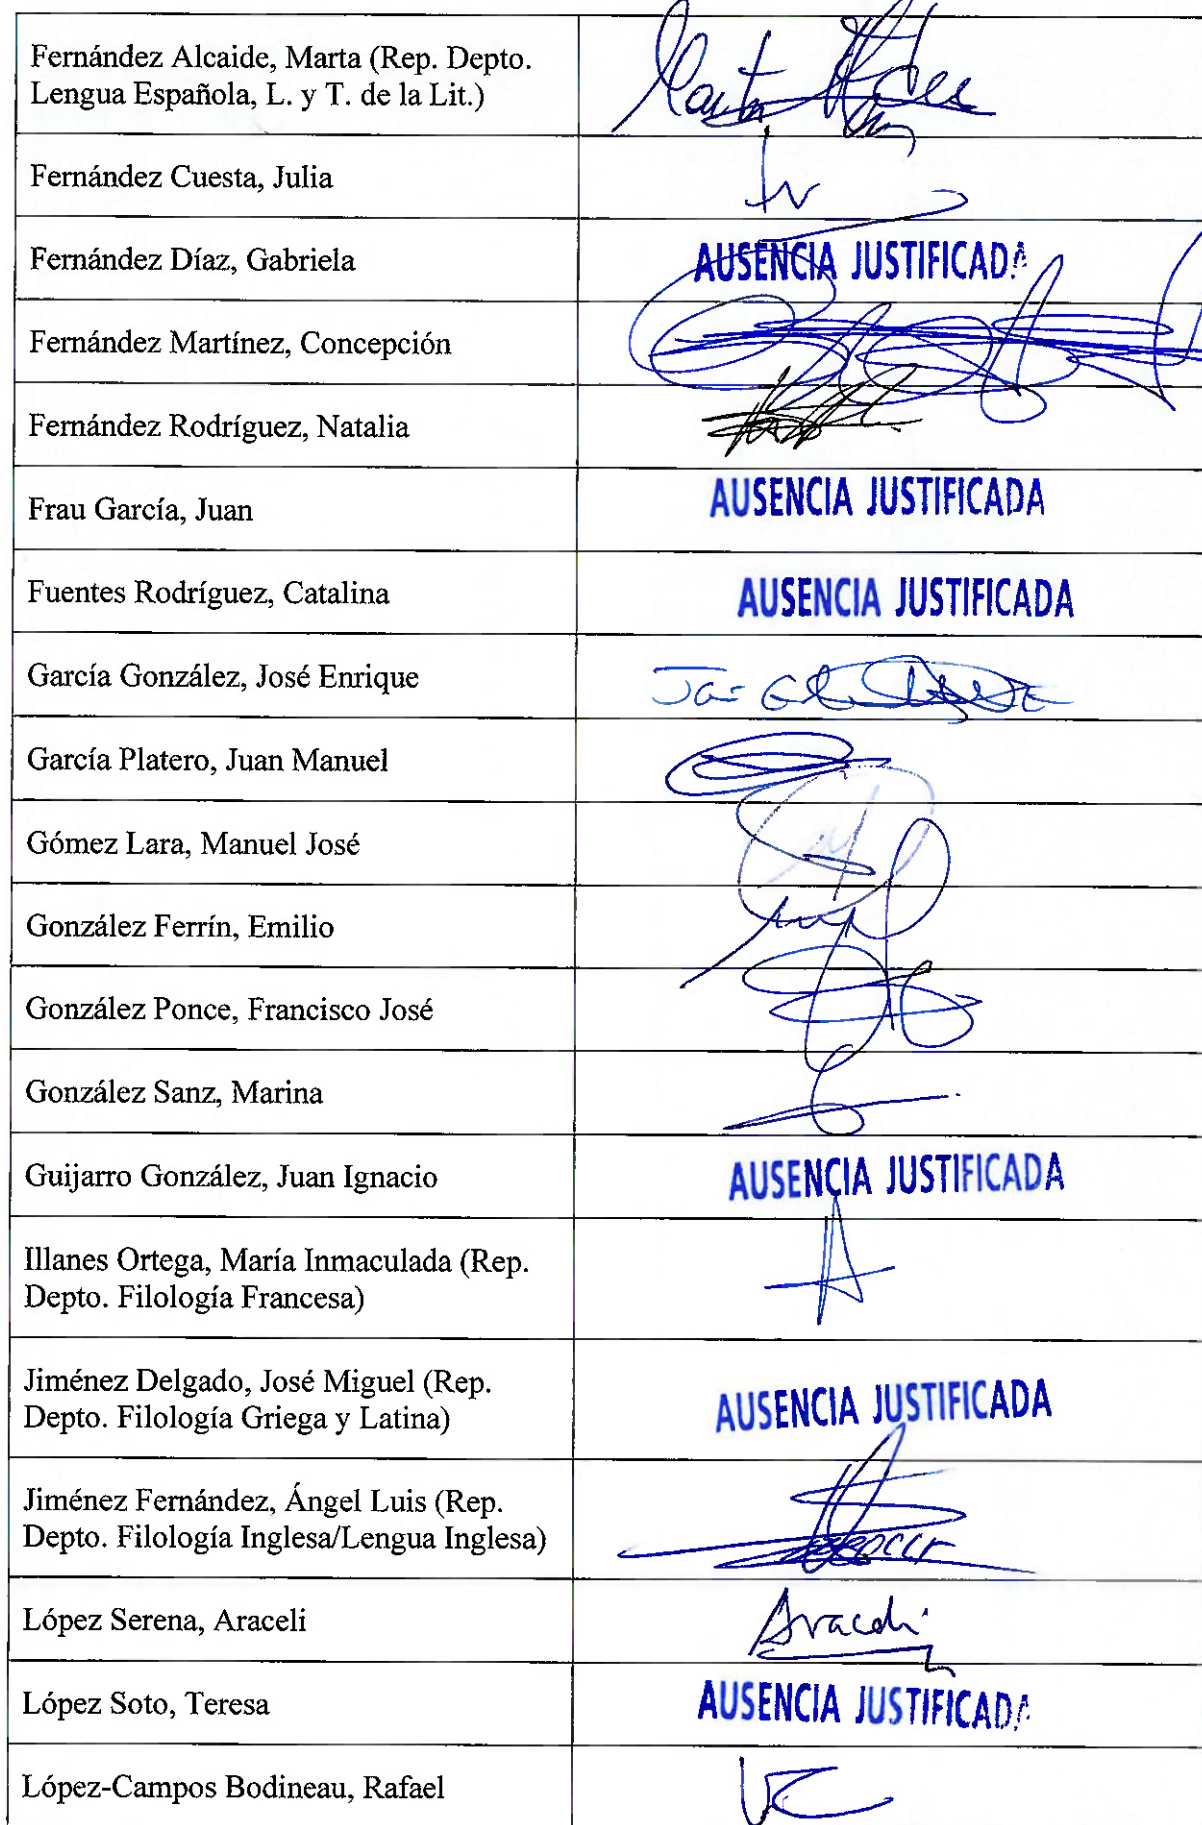 Fernández Alcaide, Marta (Rep. Depto.
Lengua Española, L. y T. de la Lit.)
Fernández Cuesta, Julia
Fernández Díaz, Gabriela
AUSENCIA JUSTIFICADA
Fernández Martínez, Concepción
Fernández Rodríguez, Natalia
Frau García, Juan
AUSENCIA JUSTIFICADA
Fuentes Rodríguez, Catalina
AUSENCIA JUSTIFICADA
García González, José Enrique
García Platero, Juan Manuel
Gómez Lara, Manuel José
González Ferrín, Emilio
González Ponce, Francisco José
González Sanz, Marina
Guijarro González, Juan Ignacio
AUSENCIA JUSTIFICADA
Illanes Ortega, María Inmaculada (Rep.
Depto. Filología Francesa)
Jiménez Delgado, José Miguel (Rep.
Depto. Filología Griega y Latina)
AUSENCIA JUSTIFICADA
Jiménez Fernández, Ángel Luis (Rep.
Depto. Filología Inglesa/Lengua Inglesa)
López Serena, Araceli
Araceli
López Soto, Teresa
AUSENCIA JUSTIFICADA
López-Campos Bodineau, Rafael